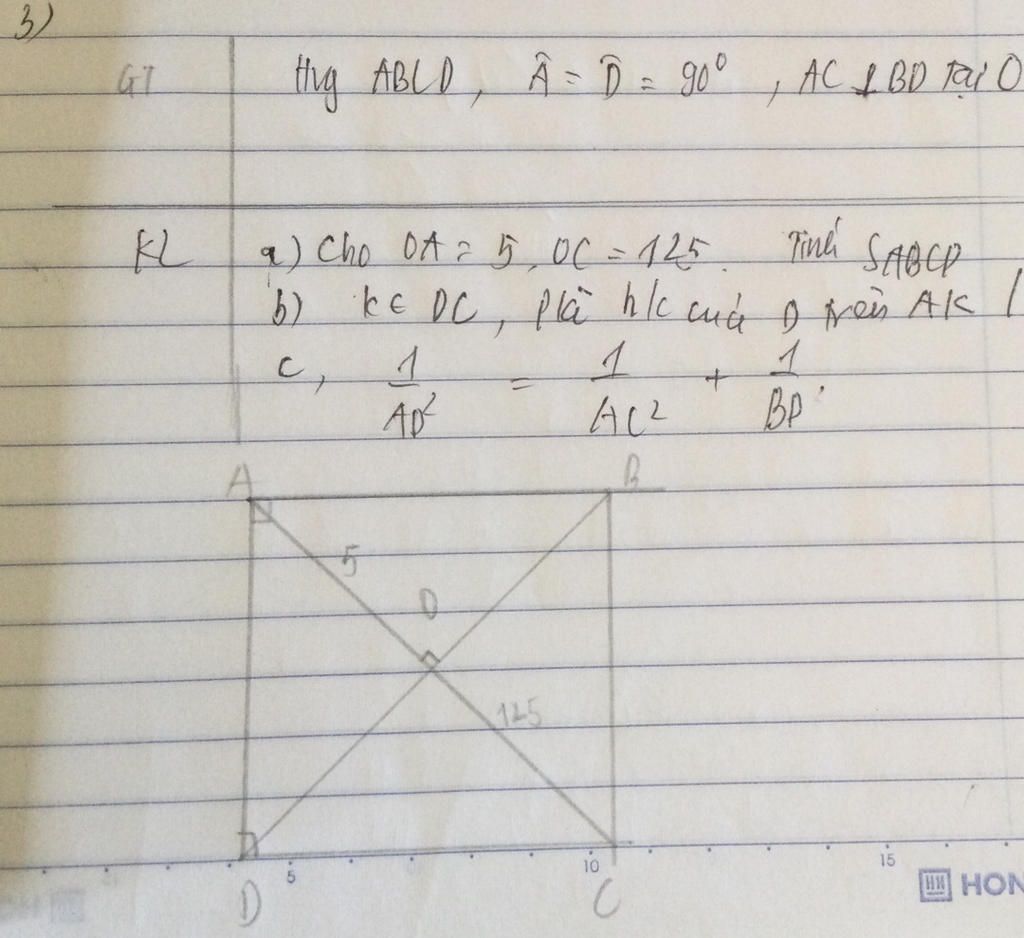 3)
GT Hvg ABCD, Â = D̂ = 90°, AC ⊥ BD Tại O
KL a) Cho OA = 5, OC = 125. Tính SABCD
b) K ∈ DC, P là h/c của D trên AK
c, 1/AD² = 1/AC² + 1/BD.
A B
5
O
125
5 10 15
HON
D C